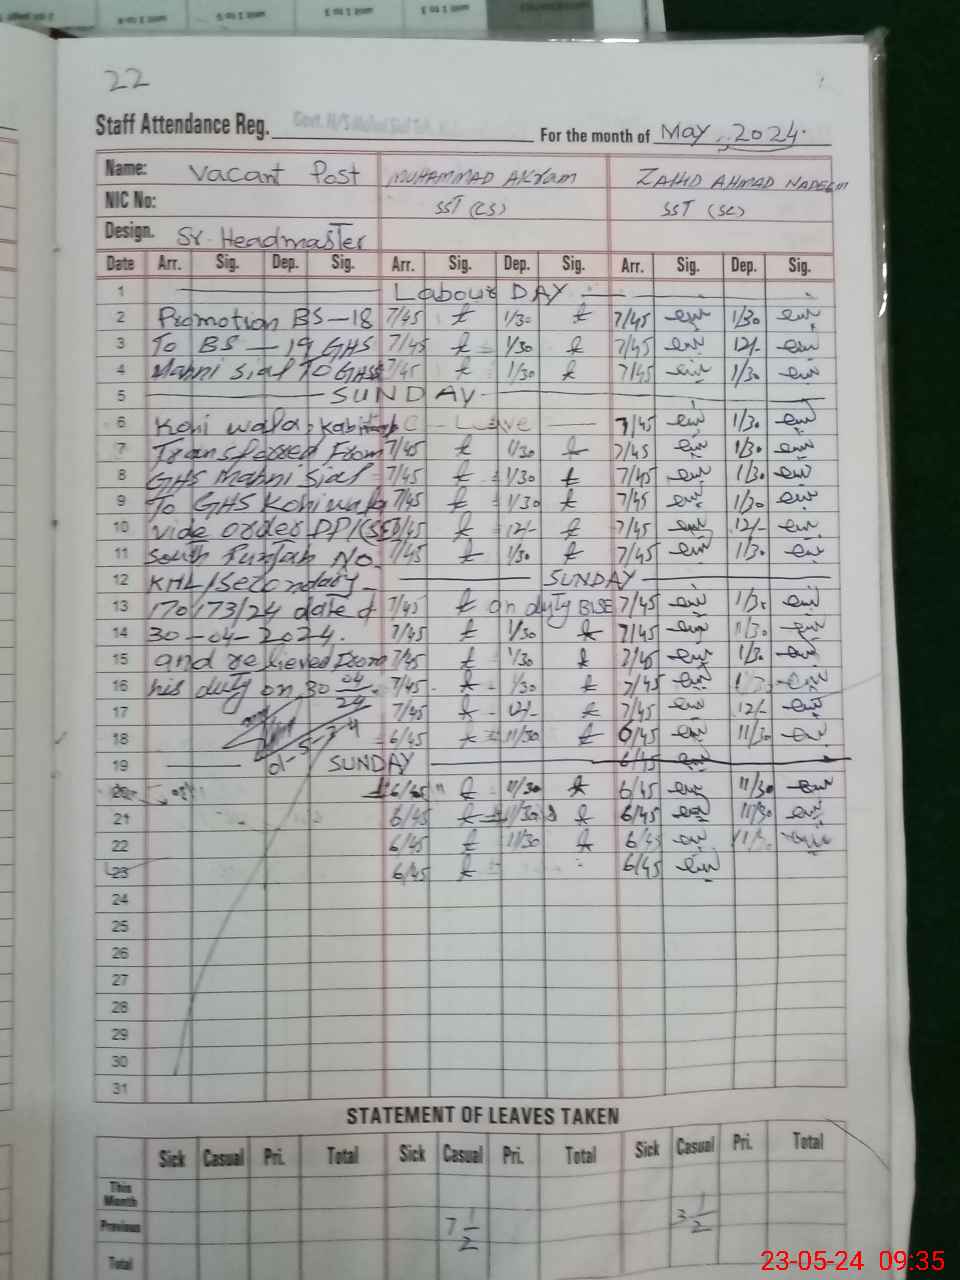 22
Staff Attendance Reg. For the month of May, 2024.
Name: Vacant Post MUHAMMAD AKram ZAHID AHMAD NADEEM
NIC No: SST (CS) SST (Sc)
Design. Sr. Headmaster
Date Arr. Sig. Dep. Sig. Arr. Sig. Dep. Sig. Arr. Sig. Dep. Sig.
1 Labour DAY
2 Promotion BS-18 7/45 1/30 7/45 1/30
3 To BS-19 GHS 7/45 1/30 7/45 12/-
4 Mahni sial To GHSS 7/45 1/30 7/45 1/30
5 SUNDAY
6 Kohi wala, C-Leave 7/45 1/30
7 Transferred From 7/45 1/30 7/45 1/30
8 GHS Mahni Sial 7/45 1/30 7/45 1/30
9 To GHS Kohiwala 7/45 1/30 7/45 1/30
10 vide order DPI(SE) 7/45 12/- 7/45 12/-
11 South Punjab No. 7/45 1/30 7/45 1/30
12 KHL/Secondary- SUNDAY
13 170173/24 dated 7/45 on duty BISE 7/45 1/30
14 30-04-2024. 7/45 1/30 7/45 1/30
15 and relieved From 7/45 1/30 7/45 1/30
16 his duty on 30 04/24. 7/45 1/30 7/45 1/30
17 7/45 12/- 7/45 12/-
18 6/45 11/30 6/45 11/30
19 01-5-24 SUNDAY 6/45
20 6/45 11/30 6/45 11/30
21 6/45 11/30 6/45 11/30
22 6/45 11/30 6/45 11/30
23 6/45 6/45
24
25
26
27
28
29
30
31
STATEMENT OF LEAVES TAKEN
Sick Casual Pri. Total Sick Casual Pri. Total Sick Casual Pri. Total
This Month
Previous 7 1/2 3 1/2
Total
23-05-24 09:35